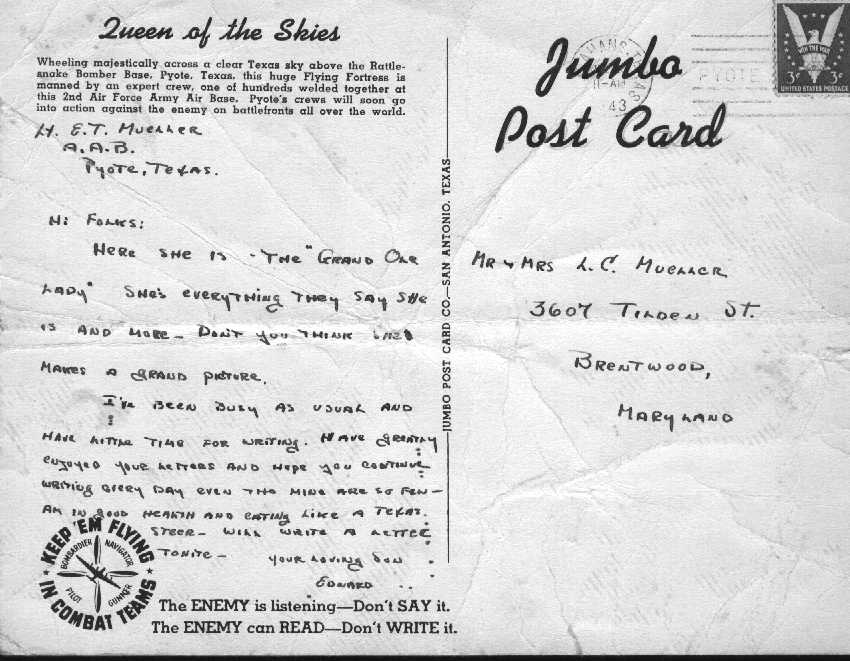 Queen of the Skies
Wheeling majestically across a clear Texas sky above the Rattle-
snake Bomber Base, Pyote, Texas, this huge Flying Fortress is
manned by an expert crew, one of hundreds welded together at
this 2nd Air Force Army Air Base. Pyote's crews will soon go
into action against the enemy on battlefronts all over the world.
Lt. E.T. Mueller
A.A.B.
Pyote, Texas.
Hi Folks:
Here she is - The "Grand Ole
Lady" She's everything they say she
is and more - Don't you think
makes a grand picture.
I've been busy as usual and
have little time for writing. Have greatly
enjoyed your letters and hope you continue
writing every day even tho mine are so few -
Am in good health and eating like a Texas
steer - will write a letter
tonite - your loving son
Edward
KEEP 'EM FLYING
IN COMBAT TEAMS
BOMBARDIER
NAVIGATOR
PILOT
GUNNER
The ENEMY is listening—Don't SAY it.
The ENEMY can READ—Don't WRITE it.
JUMBO POST CARD CO.—SAN ANTONIO, TEXAS
Jumbo
Post Card
11-AM
43
TEXAS
PYOTE
WIN THE WAR
3¢ 3¢
UNITED STATES POSTAGE
Mr & Mrs L.C. Mueller
3607 Tilden St.
Brentwood,
Maryland